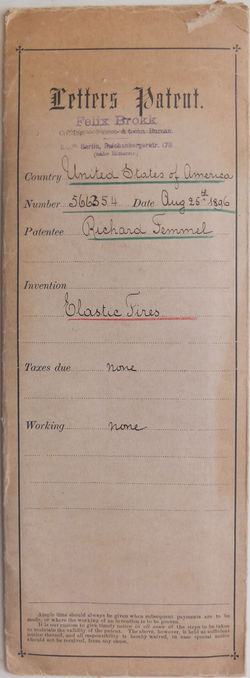 Letters Patent.
Felix Brokk
Berlin,
Country United States of America
Number 566354 Date Aug 25th 1896
Patentee Richard Temmel
Invention
Elastic Tires
Taxes due none
Working none
Ample time should always be given when subsequent payments are to be
made, or where the working of an invention is to be proven.
It is our custom to give timely notice to all of the steps to be taken
to maintain the validity of the patent. The above, however, is held as sufficient
notice thereof, and all responsibility is hereby waived, in case special notice
should not be received, from any cause.